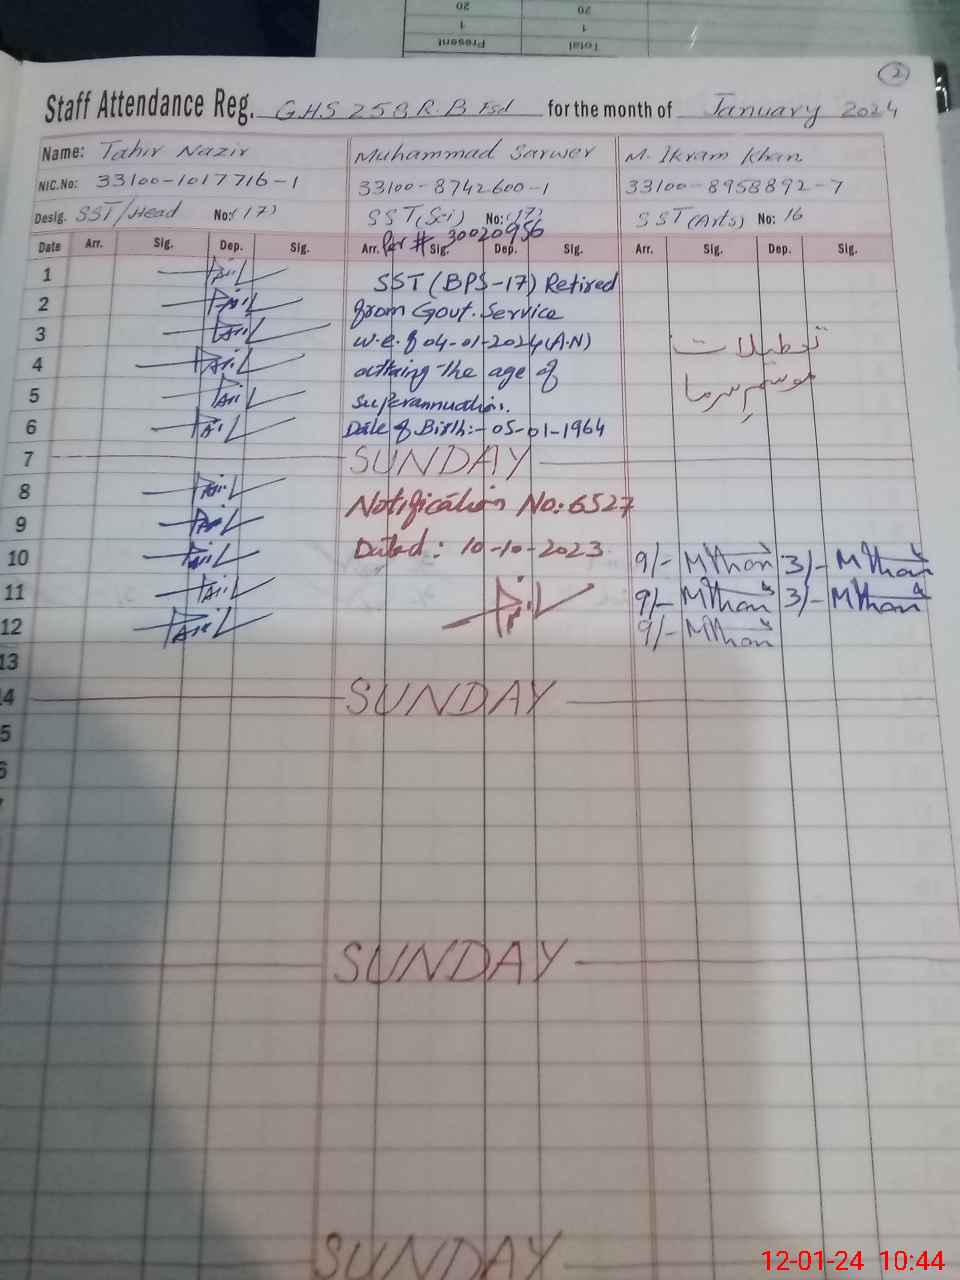 Total Present
1 1
20 20
2
Staff Attendance Reg. G.H.S 258 R.B Fsd for the month of January 2024
Name: Tahir Nazir Muhammad Sarwer M. Ikram Khan
NIC.No: 33100-1017716-1 33100-8742600-1 33100-8958892-7
Desig. SST/Head No:(17) SST(Sci) No:(17) SST(Arts) No: 16
Per # 30020956
Date Arr. Sig. Dep. Sig. Arr. Sig. Dep. Sig. Arr. Sig. Dep. Sig.
1 SST (BPS-17) Retired
2 from Govt. Service
3 w.e.f 04-01-2024 (A.N) تعطیلات
4 attaing the age of موسمِ سرما
5 superannuation.
6 Date of Birth:- 05-01-1964
7 SUNDAY
8 Notification No: 6527
9 Dated: 10-10-2023
10 9/- MKhan 3/- MKhan
11 9/- MKhan 3/- MKhan
12 9/- MKhan
13
4 SUNDAY
5
6
SUNDAY
SUNDAY
12-01-24 10:44